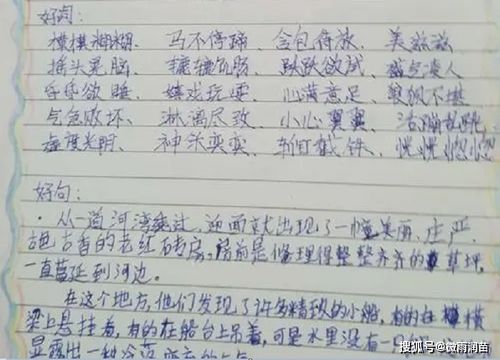 好词:
模模糊糊、马不停蹄、含包待放、美滋滋
摇头晃脑、辘辘饥肠、跃跃欲试、盛气凌人
昏昏欲睡、嬉戏玩耍、心满意足、狼狈不堪
气急败坏、淋漓尽致、小心翼翼、活蹦乱跳
虚度光阴、神采奕奕、斩钉截铁、恍恍惚惚
好句:
·从一道河湾绕过,迎面就出现了一幢美丽、庄严、
古色古香的老红砖房,房前是修理得整整齐齐的草坪,
一直蔓延到河边。
在这个地方,他们发现了许多精致的小船,有的在横
梁上悬挂着,有的在船台上吊着,可是水里没有一
显露出一种冷落
搜狐号@微雨润苗